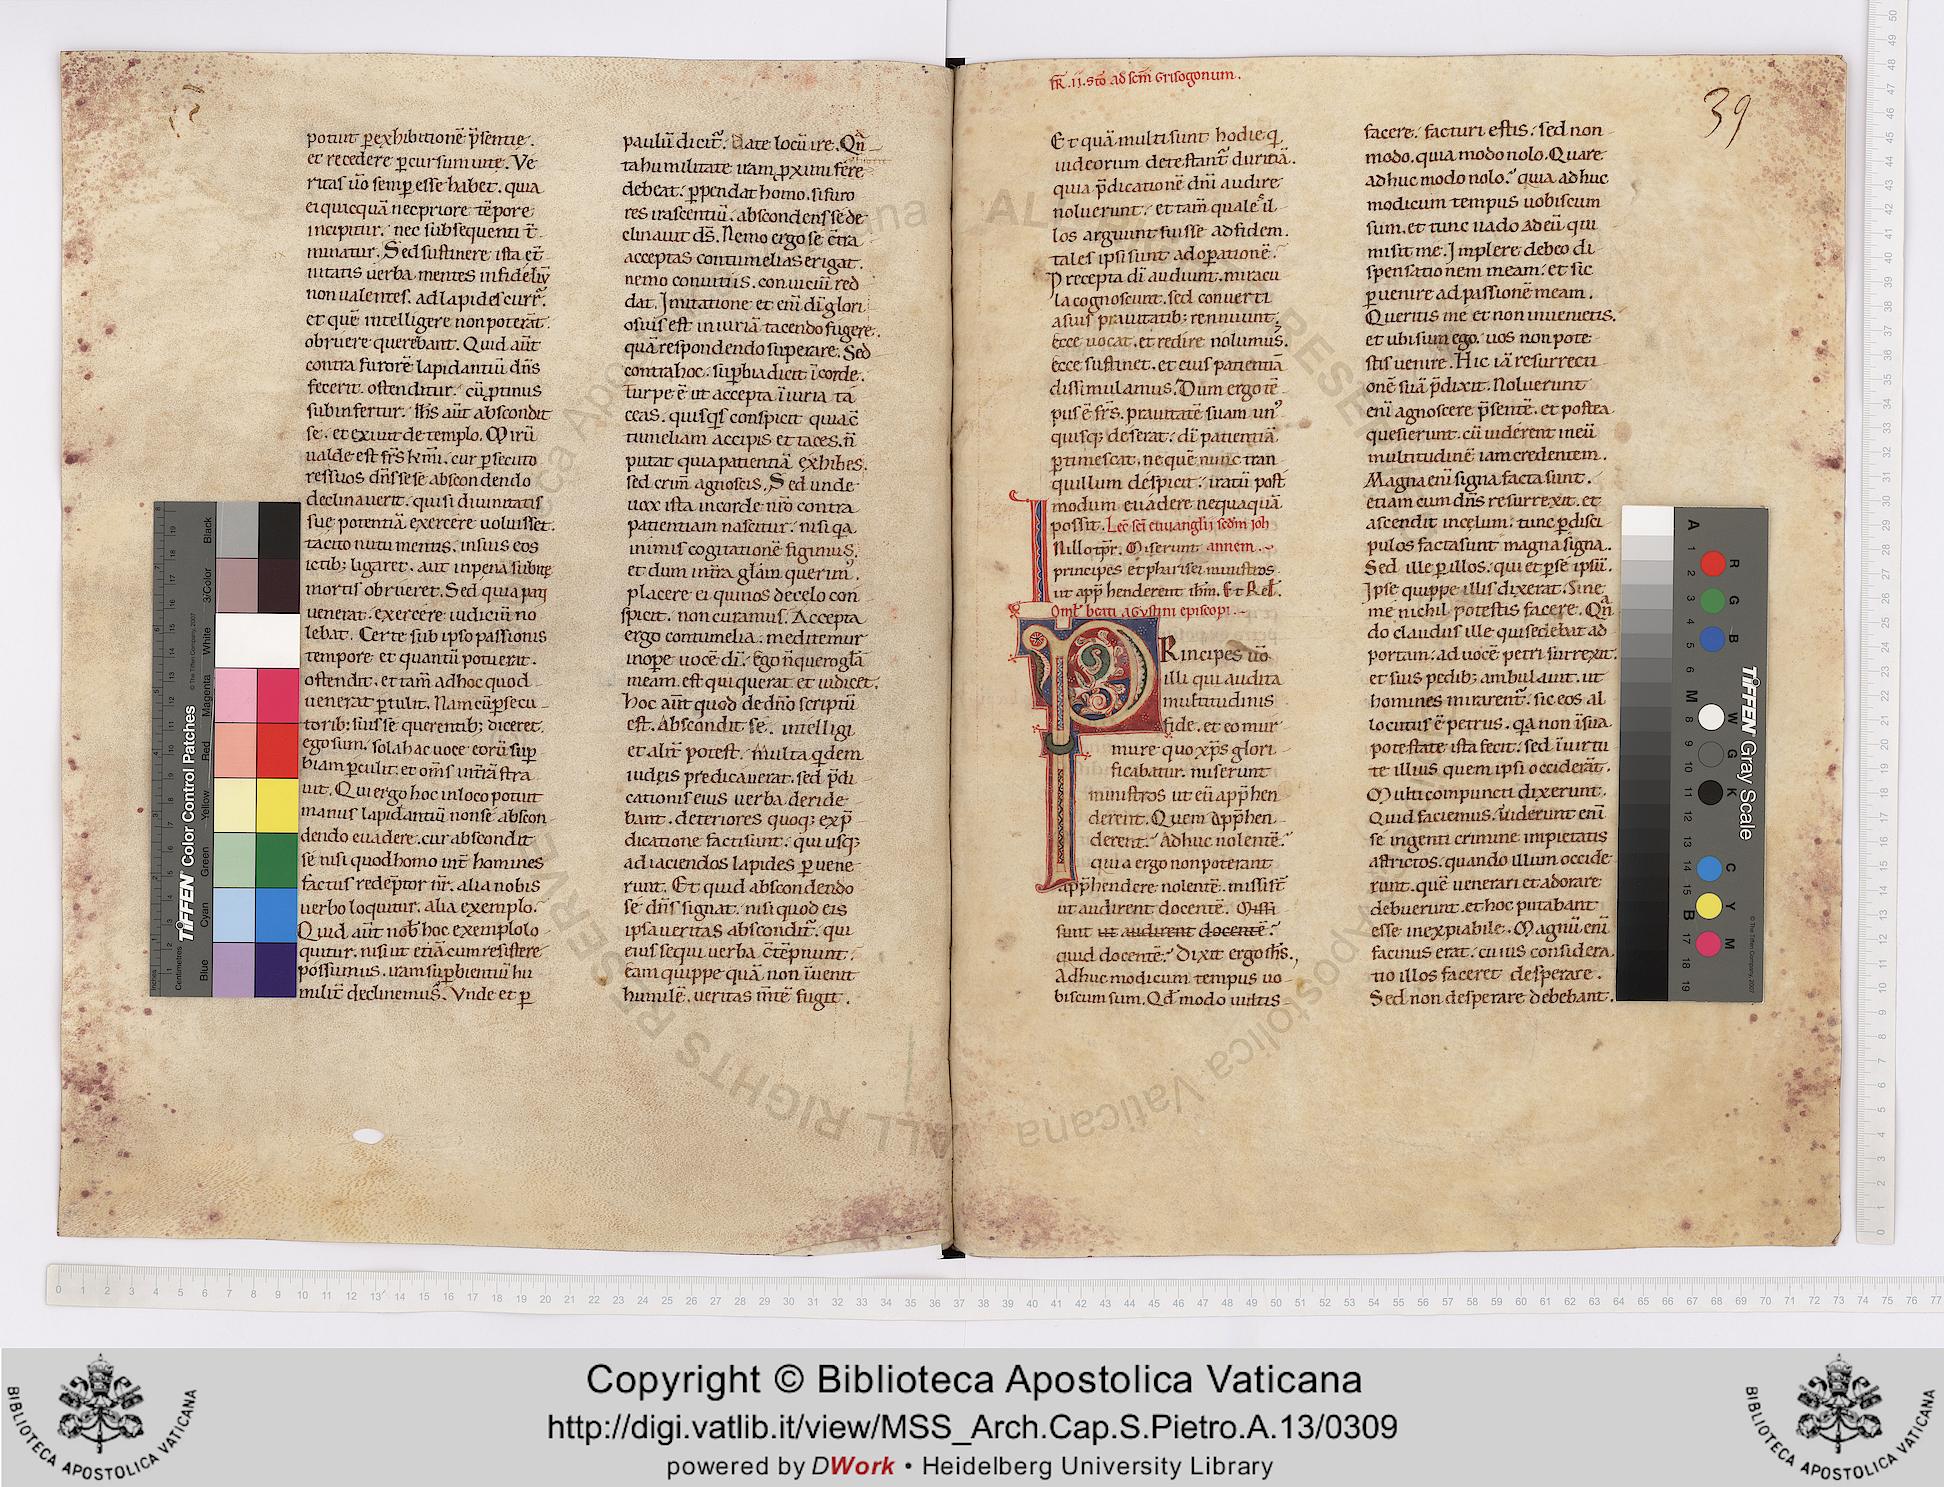 potuit p̄exhibitionē p̄sentie.
et recedere p̄cursum uite. Ve
ritas ū̄o semp̄ esse habet. quia
ei quicquā nec priore tēpore
incipitur. nec subsequenti t̄
minatur. Sed sustinere ista et̄
nitatis uerba mentes infideliū
non ualentes. ad lapides curr̄.
et quē intelligere non poterāt.
obruere querebant. Quid aūt
contra furorē lapidantiū dn̄s
fecerit. ostenditur. cū p̱tinus
subinfertur. Ihs aūt abscondit
se. et exiuit de templo. Mirū
ualde est frs̄ km̄i. cur p̄secuto
res suos dn̄s sese abscondendo
declinauerit. qui si diuinitatis
sue potentiā exercere uoluisset.
tacito nutu mentis. in suis eos
ictib; ligaret. aut in pena subite
mortis obrueret. Sed quia pati
uenerat. exercere iudiciū no
lebat. Certe sub ipso passionis
tempore et quantū potuerit.
ostendit. et tam̄ ad hoc quod
uenerat p̄tulit. Nam cū p̄secu
torib; suis se querentib; diceret.
ego sum. sola hac uoce eorū sup̄
biam p̄culit. et om̄s in trā stra
uit. Qui ergo hoc in loco potuit
manus lapidantiū non se abscon
dendo euadere. cur abscondit
se nisi quod homo int̄ homines
factus redēptor nr̄. alia nobis
uerbo loquitur. alia exemplo.
Quid aūt nob̄ hoc exemplo lo
quitur. nisi ut etiā cum resistere
possumus. iram sup̄bientiū hu
milit̄ declinemus. Vnde et p̄
paulū dicit̄. Date locū ire. Qn̄
ta humilitate iram p̱ximi fere
debeat. p̄pendat homo. si furo
res irascentiū. abscondens se de
clinauit ds̄. Nemo ergo se c̄tra
acceptas contumelias erigat.
nemo conuitiis. conuiciū red
dat. Imitatione et eni di glori
osius est iniuriā tacendo fugere.
quā respondendo superare. Sed
contra hoc. sup̄bia dicit ī corde.
Turpe ē ut accepta īiuria ta
ceas. quisq̄s conspicit quia c̄
tumeliam accipis et taces. n̄
putat quia patientiā exhibes.
sed crim̄ agnoscis. Sed unde
uox ista in corde nr̄o contra
patientiam nascitur. nisi qa
in imis cogitationē figimus.
et dum in t̄ra glām querim̄.
placere ei qui nos de celo con
spicit. non curamus. Accepta
ergo contumelia. meditemur
in ope uocē di. Ego n̄ quero glā
meam. est qui querat et iudicet.
Hoc aūt quod de dn̄o scriptū
est. Abscondit se. intelligi
et alit̄ potest. Multa q̄dem
iudeis predicauerat. sed p̄di
cationis eius uerba deride
bant. deteriores quoq; ex p̄
dicatione facti sunt. qui usq;
ad iaciendos lapides p̄ uene
runt. Et quid abscondendo
se dn̄s signat. nisi quod eis
ipsa ueritas abscondit̄. qui
eius sequi uerba c̄tēpnunt.
Eam quippe quā non īuenit
humilē. ueritas m̄tē fugit.
fR̄. ii. sto ad scm̄ Grisogonum.
39
Et quā multi sunt hodie q̄
iudeorum detestant̄ duritiā.
quia p̄dicationē dn̄i audire
noluerunt. et tam̄ quales il
los arguunt fuisse ad fidem.
tales ipsi sunt ad op̄ationē.
Precepta di audiunt. miracu
la cognoscunt. sed conuerti
a suis prauitatib; rennuunt.
Ecce uocat. et redire nolumus.
Ecce sustinet. et eius patientiā
dissimulamus. Dum ergo tē
pus ē frs̄. prauitatē suam un̄
quisq; deserat. di patientiā
p̄timescat. ne quē nunc tran
quillum despicit. iratū post
modum euadere nequaquā
possit. Lec̄ sci euuanglij scdm̄ joh
In illo tp̄r. Miserunt annem.
principes et pharisei ministros
ut app̄henderent ihm̄. Et Rel̄.
Oml̄ beati agustini episcopi.
PRincipes ū̄o
illi qui audita
multitudinis
fide. et eo mur
mure quo xp̄s glori
ficabatur. miserunt
ministros ut eū app̄hen
derent. Quem app̄hen
derent. Adhuc nolentē.
quia ergo non poterant
app̄hendere nolentē. missi st̄
ut audirent docentē. Missi
sunt ut audirent docentē.
quid docentē. Dixit ergo ihs̄.
Adhuc modicum tempus uo
biscum sum. Qd̄ modo uultis
facere. facturi estis. sed non
modo. quia modo nolo. Quare
adhuc modo nolo. quia adhuc
modicum tempus uobiscum
sum. et tunc uado ad eū qui
misit me. Implere debeo di
spensationem meam. et sic
p̄uenire ad passionē meam.
Queritis me et non inuenietis.
et ubi sum ego. uos non pote
stis uenire. Hic iā resurrecti
onē suā p̄dixit. Noluerunt
eni agnoscere p̄sentē. et postea
quesierunt. cū uiderent in eū
multitudinē iam credentem.
Magna eni signa facta sunt.
etiam cum dn̄s resurrexit. et
ascendit in celum. tunc p̄ disci
pulos facta sunt magna signa.
Sed ille p̄ illos. qui et p̄ se ipsū.
Ipse quippe illis dixerat. Sine
me nichil potestis facere. Qn̄
do claudus ille qui sedebat ad
portam. ad uocē petri surrexit.
et suis pedib; ambulauit. ut
homines mirarent̄. sic eos al
locutus ē petrus. qa non ī sua
potestate ista fecit. sed ī uirtu
te illius quem ipsi occiderāt.
Multi compuncti dixerunt.
Quid faciemus. Viderunt eni
se ingenti crimine impietatis
astrictos. quando illum occide
runt. quē uenerari et adorare
debuerunt. et hoc putabant
esse inexpiabile. Magnū eni
facinus erat. cuius considera
tio illos faceret desperare.
Sed non desperare debebant.
TIFFEN Color Control Patches
© The Tiffen Company, 2007
Blue
Cyan
Green
Yellow
Red
Magenta
White
3/Color
Black
TIFFEN Gray Scale
© The Tiffen Company, 2007
Copyright © Biblioteca Apostolica Vaticana
http://digi.vatlib.it/view/MSS_Arch.Cap.S.Pietro.A.13/0309
powered by DWork • Heidelberg University Library
BIBLIOTECA APOSTOLICA VATICANA
BIBLIOTECA APOSTOLICA VATICANA